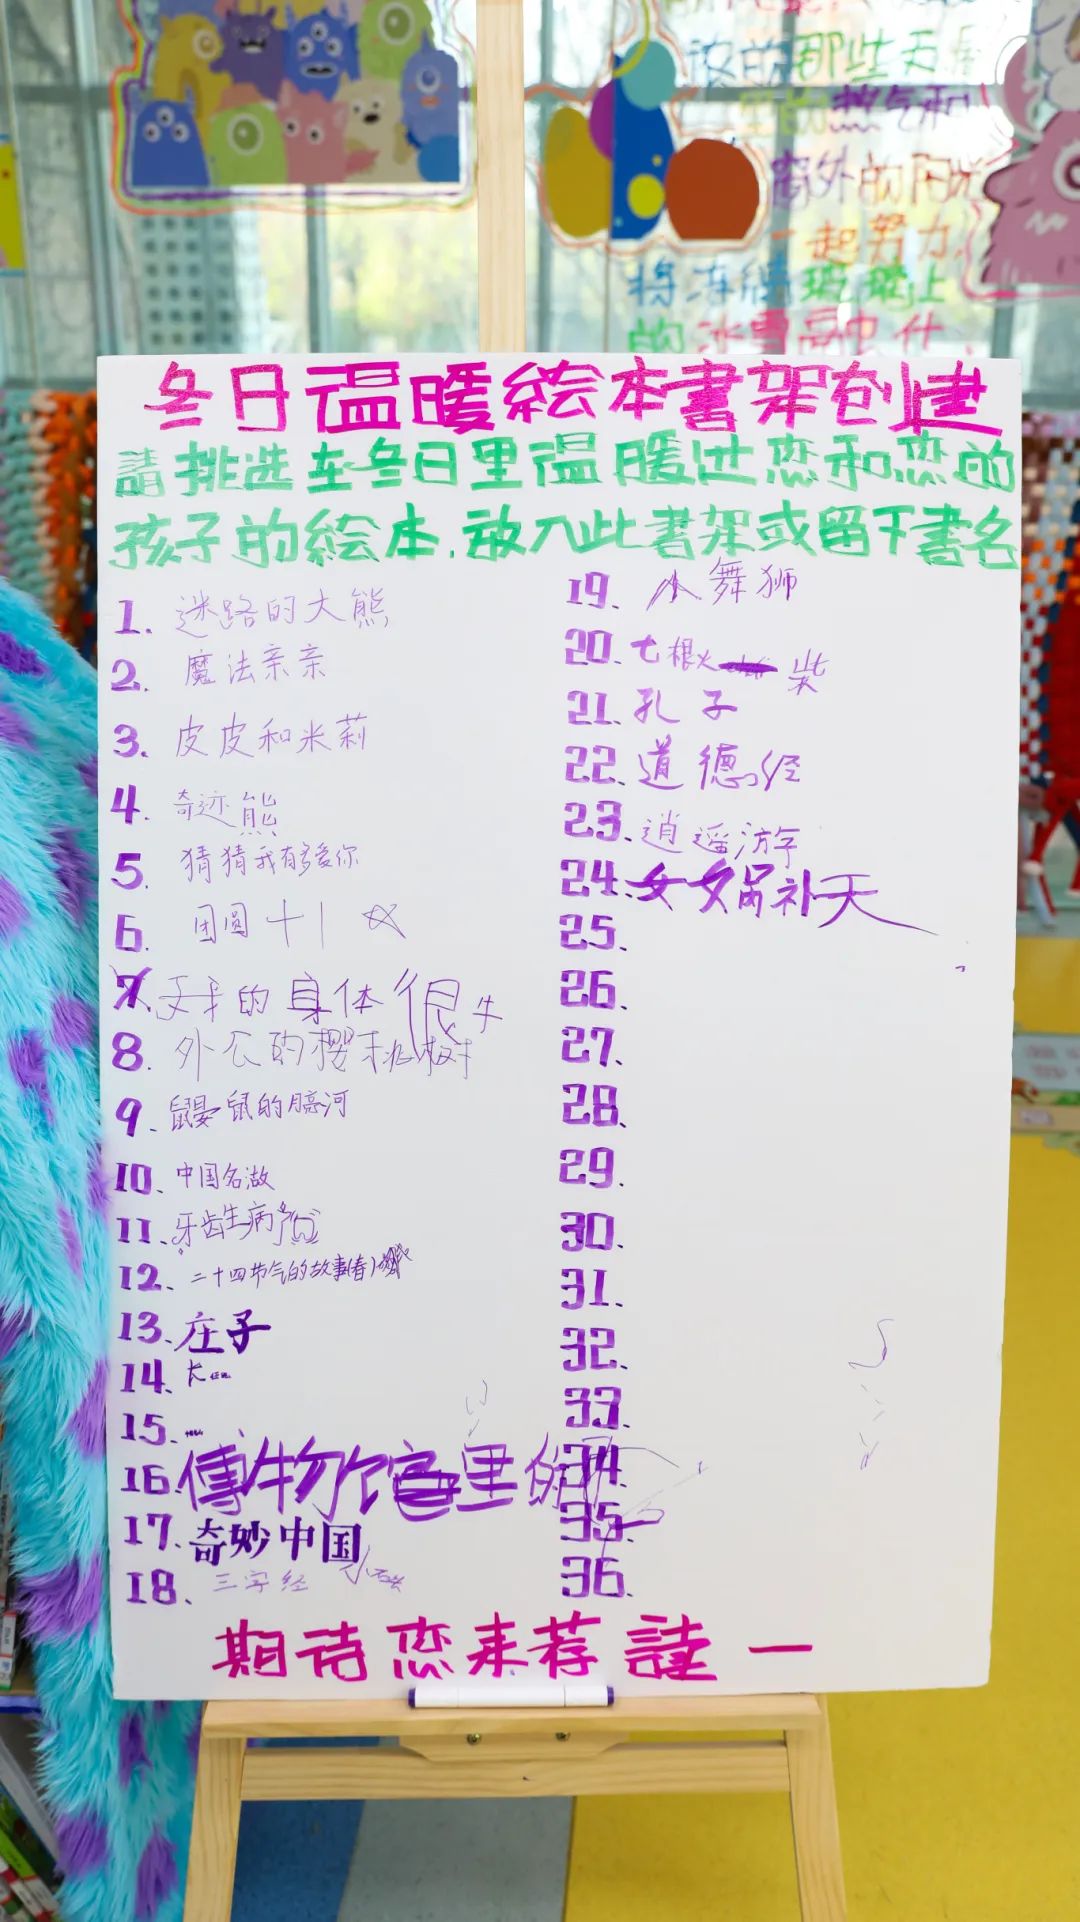 冬日温暖絵本書架创建
請挑选在冬日里温暖过您和您的
孩子的絵本,放入此書架或留下書名
1. 迷路的大熊
2. 魔法亲亲
3. 皮皮和米莉
4. 奇迹熊
5. 猜猜我有多爱你
6. 团圆
7. 我的身体很牛
8. 外公的樱桃树
9. 鼹鼠的月亮河
10. 中国名
11. 牙齿生病
12. 二十四节气的故事(春)
13. 庄子
14.
15.
16. 博物馆里的
17. 奇妙中国
18. 三字经
19. 小舞狮
20. 七根火柴
21. 孔子
22. 道德经
23. 逍遥游
24. 女娲补天
25.
26.
27.
28.
29.
30.
31.
32.
33.
34.
35.
36.
期待您来荐読一
那些天
热气和
窗外的阳光
一起努力,
将冻结玻璃上
的冰雪融化